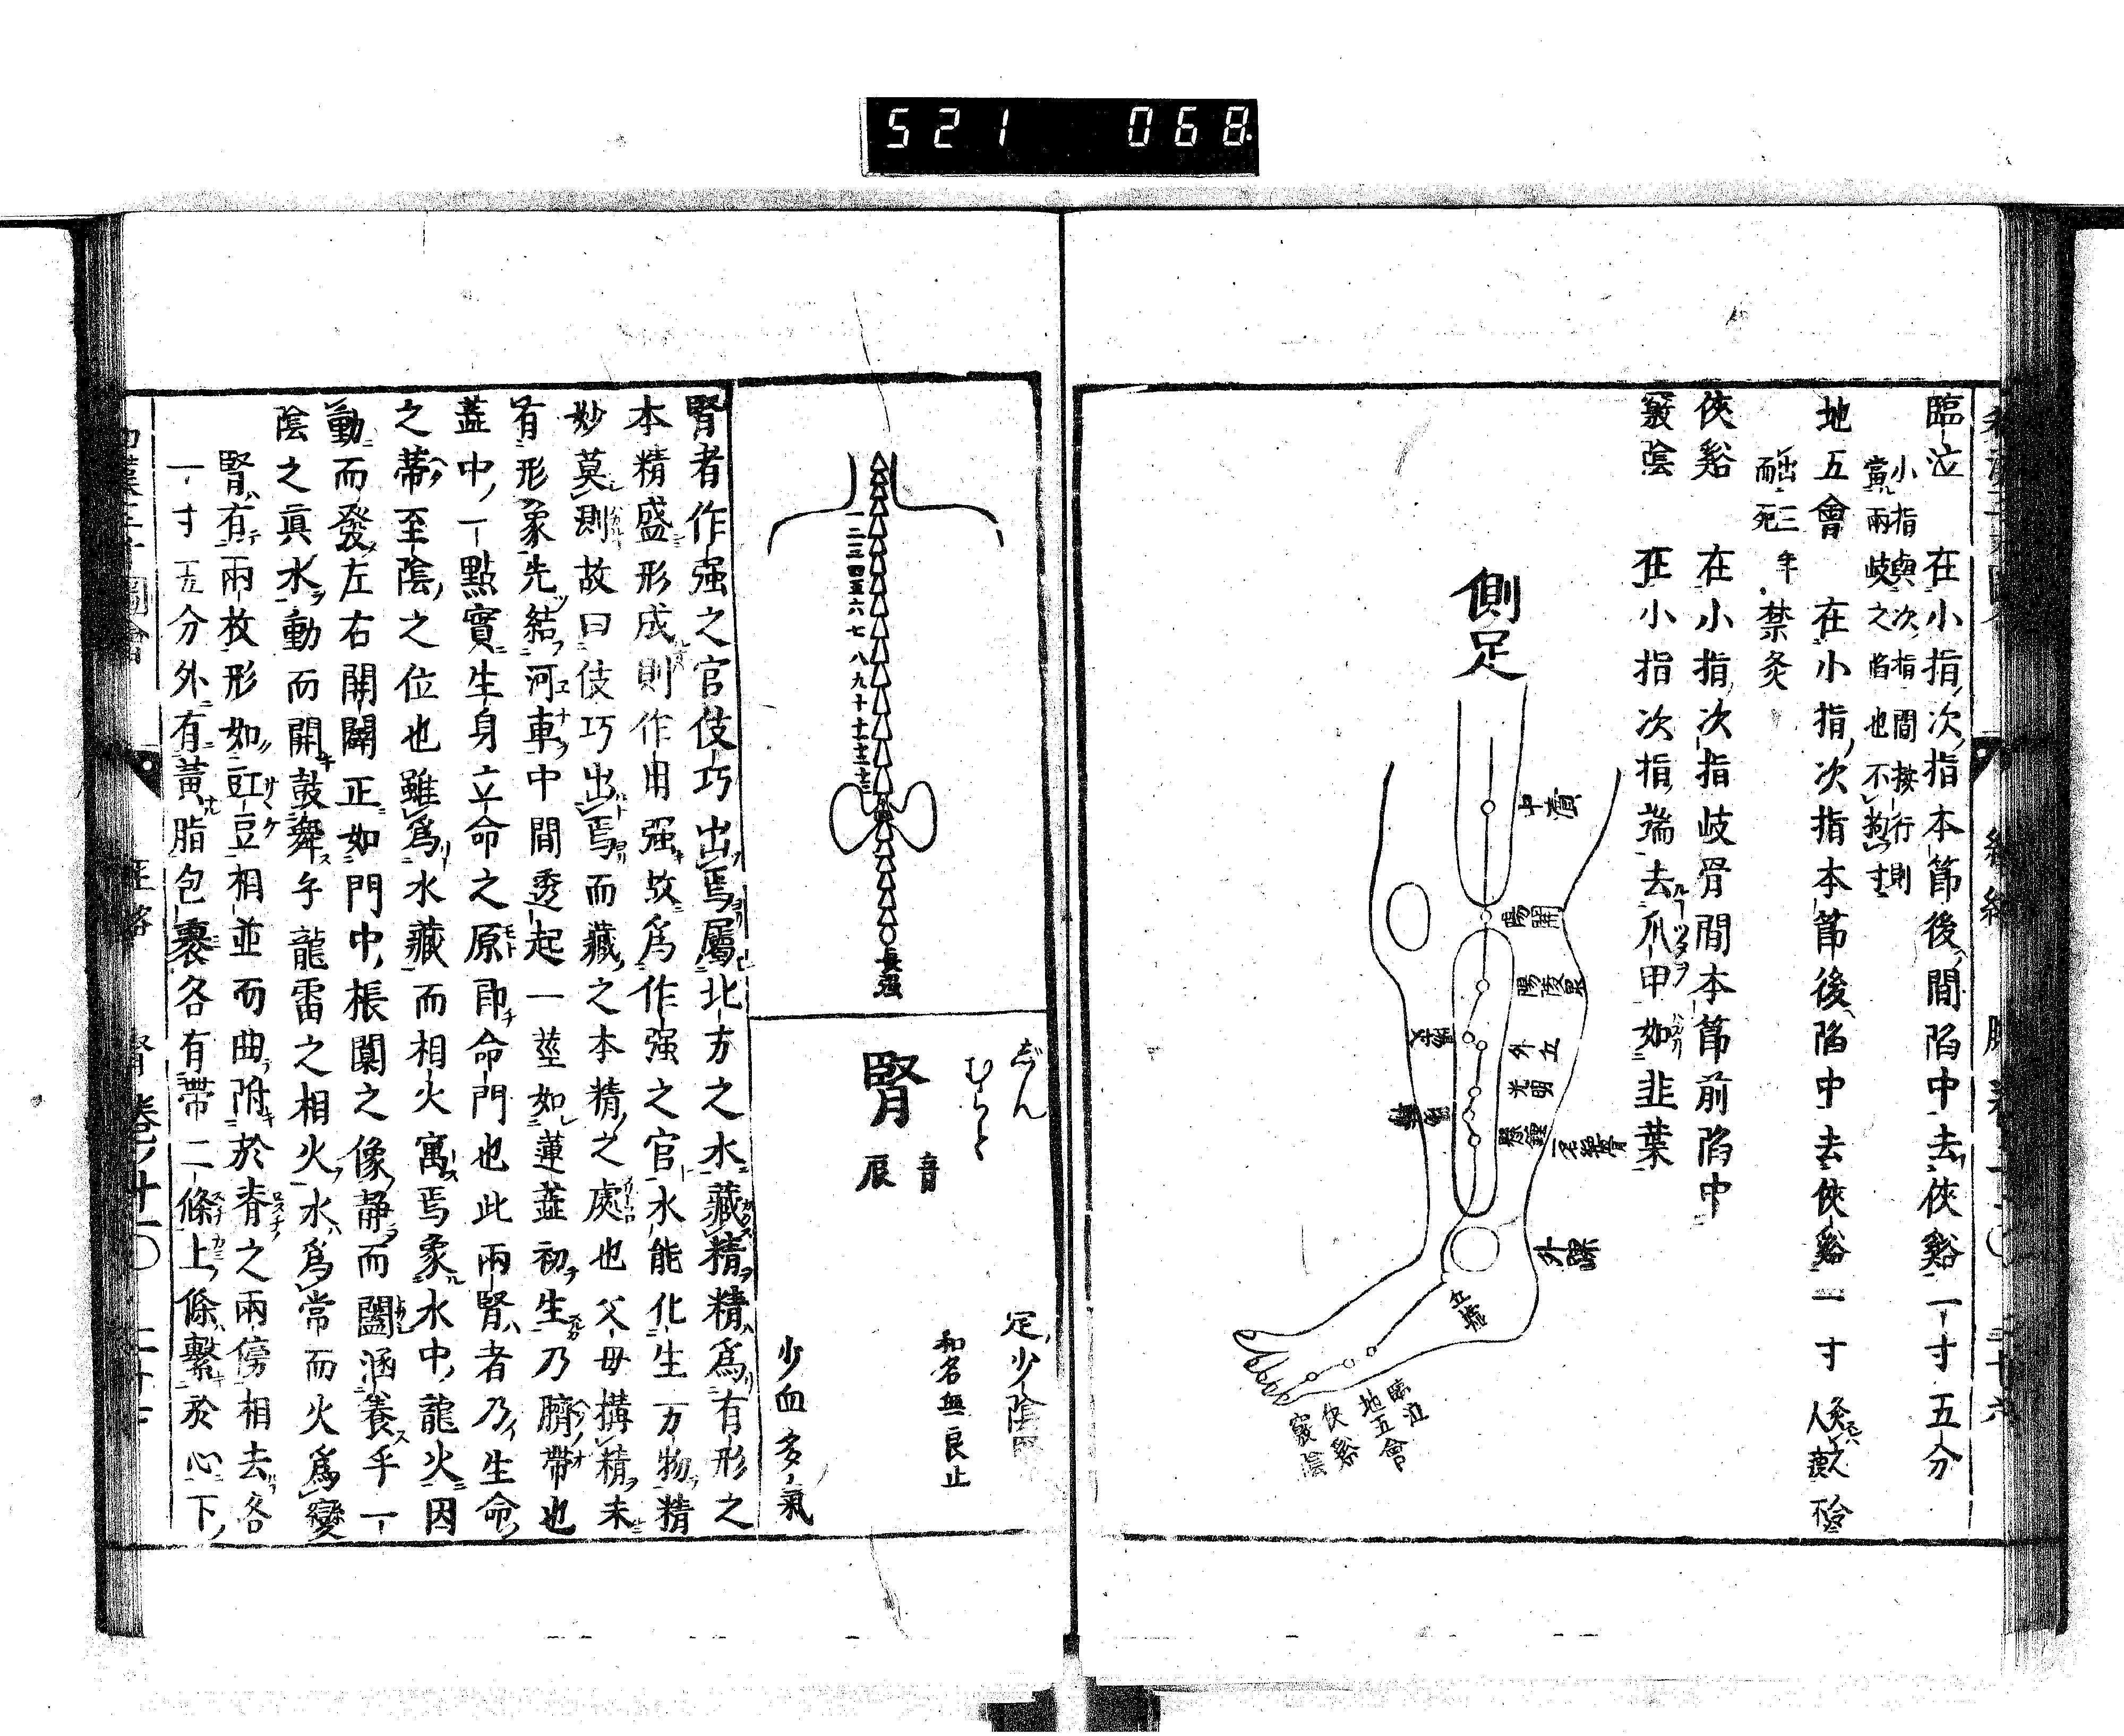 521 068
臨泣 在小指次指本節後間陷中去俠谿一寸五分
小指與次指間按行則
當兩歧之陷也不拘寸
地五會 在小指次指本節後陷中去俠谿一寸
出三年
而死
禁灸
俠谿 在小指次指歧骨間本節前陷中
竅陰 在小指次指端去爪甲如韭葉
側足
中瀆
陽關
陽陵泉
外丘
光明
懸鍾
外踝
丘墟
臨泣
地五會
俠谿
竅陰
一二三四五六七八九十
長强
じん
むらと
腎
音
辰
足少陰
和名無良止
少血多氣
腎者作强之官伎巧出焉屬北方之水藏精精爲有形之
本精盛形成則作用强故爲作强之官水能化生万物精
妙莫測故曰伎巧出焉而藏之本精之處也父母搆精未
有形象先結河車中間透起一莖如蓮蕋初生乃臍帶也
蕋中一點實生身立命之原即命門也此兩腎者乃生命
之蒂至陰之位也雖爲水藏而相火寓焉象水中龍火因
動而發左右開闢正如門中棖闑之像静而闔涵養乎一
陰之眞水動而開鼓舞乎龍雷之相火水爲常而火爲變
腎有兩枚形如豇豆相並而曲附於脊之兩傍相去各
一寸五分外有黃脂包裹各有帶二條上條繫於心下